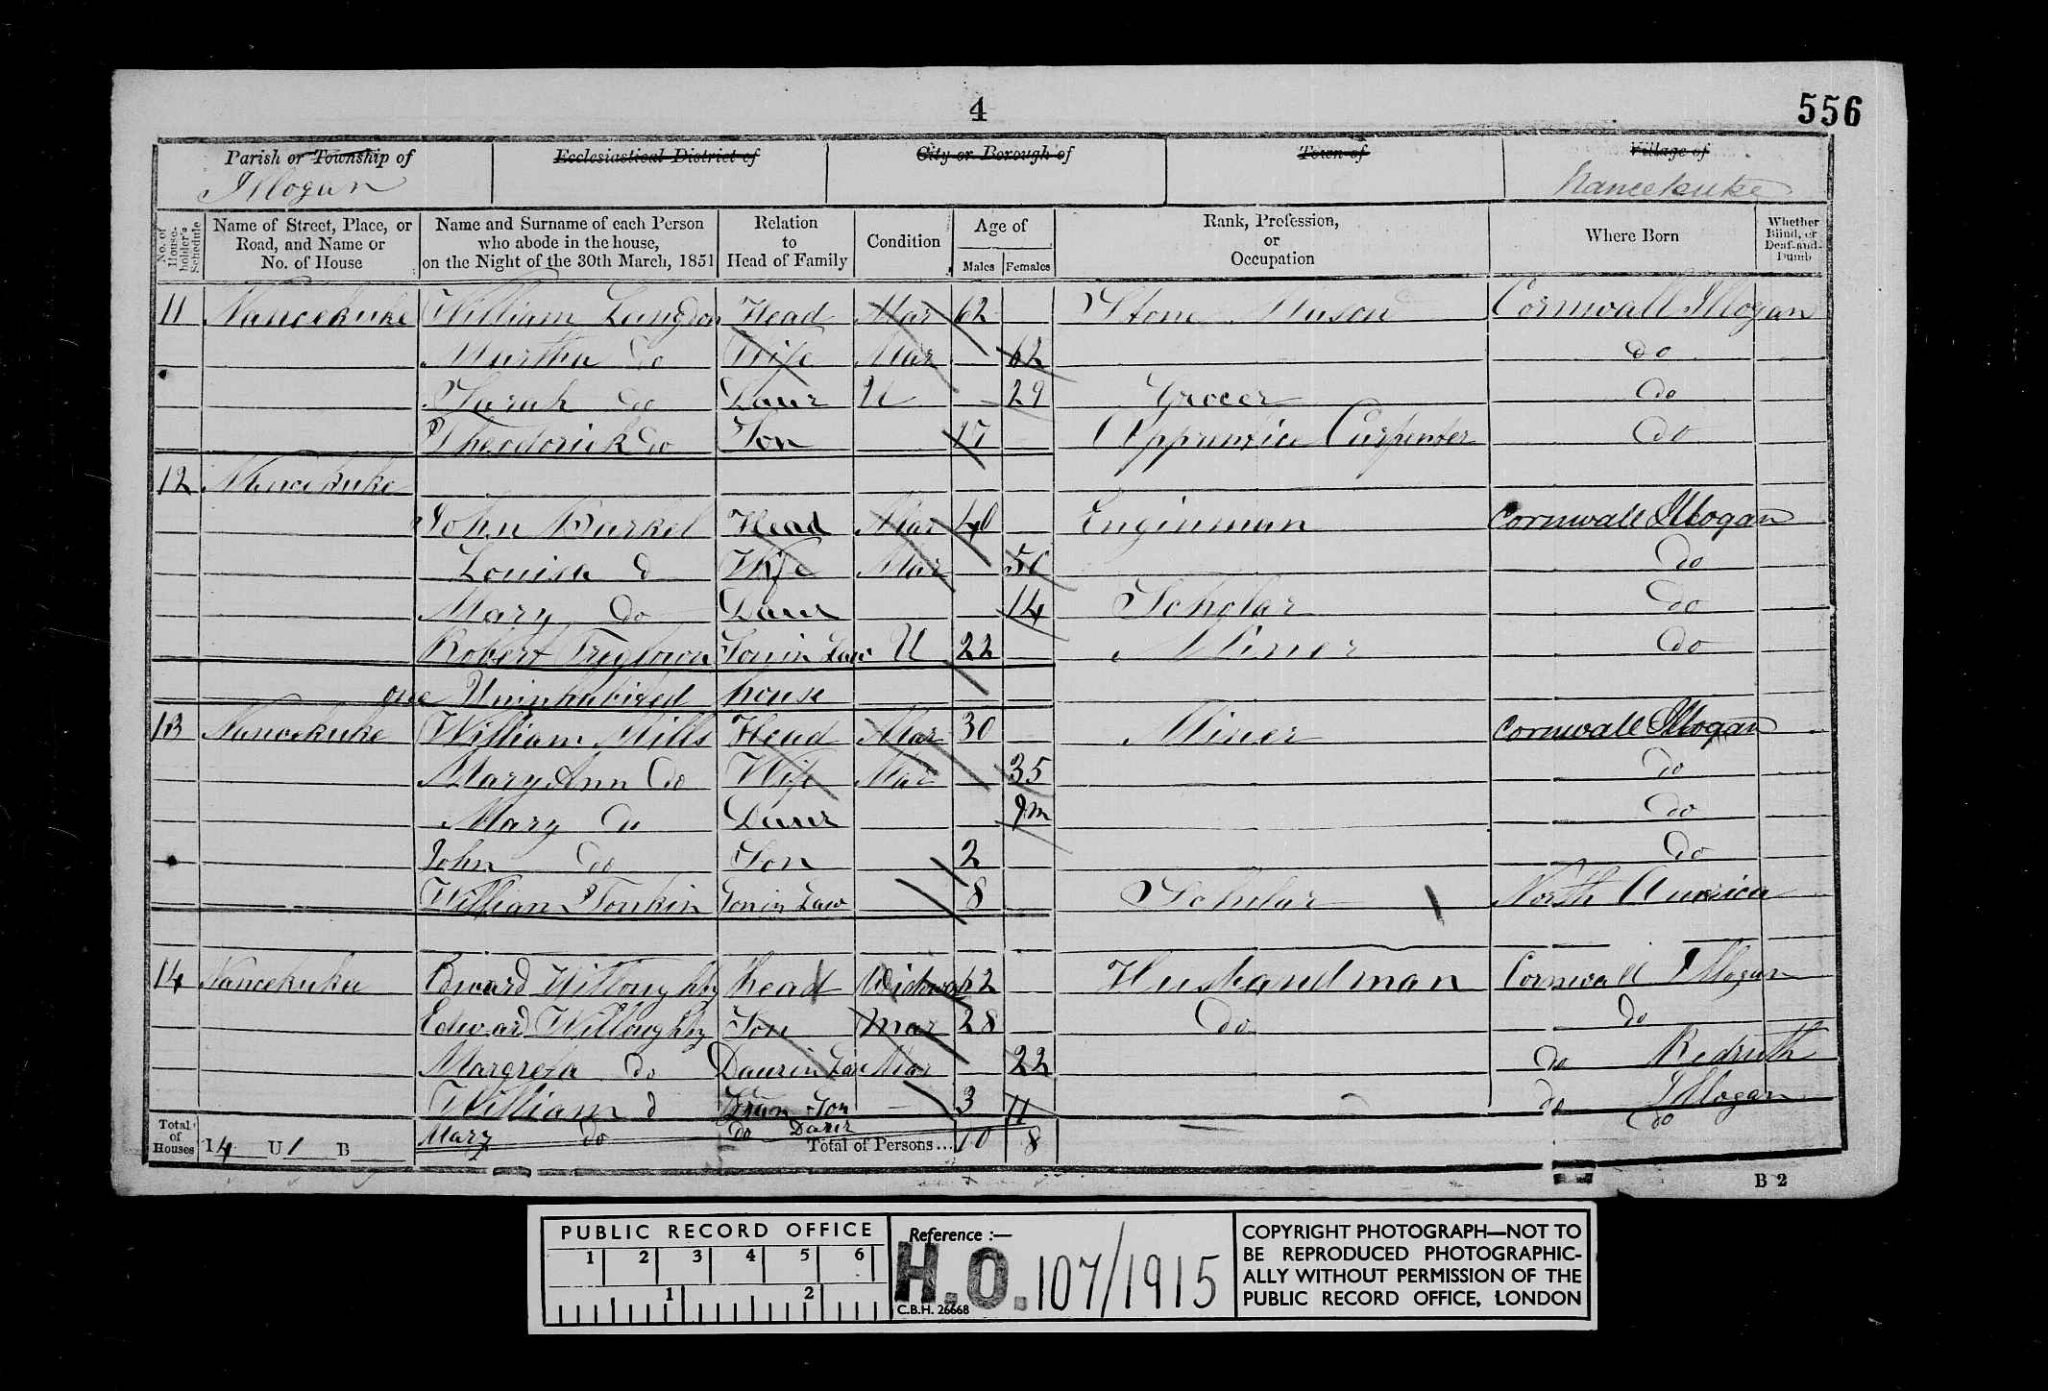 4
556
Parish or Township of
Ecclesiastical District of
City or Borough of
Town of
Village of
Illogan
Nancekuke
No. of House-holder's Schedule
Name of Street, Place, or Road, and Name or No. of House
Name and Surname of each Person who abode in the house, on the Night of the 30th March, 1851
Relation to Head of Family
Condition
Age of
Males
Females
Rank, Profession, or Occupation
Where Born
Whether Blind, or Deaf-and-Dumb
11 Nancekuke William Head Mar 62 Stone Mason Cornwall Illogan
Martha Do Wife Mar 62 do
Sarah Do Daur U 29 Grocer do
Theodorick Do Son 17 Apprentice Carpenter do
12 Nancekuke
John Head Mar 40 Engineman Cornwall Illogan
Louisa d Wife Mar Do
Mary Do Daur 14 Scholar Do
Robert Treglown Son in Law U 22 Miner Do
one Uninhabited house
13 Nancekuke William Mills Head Mar 30 Miner Cornwall Illogan
Mary Ann Do Wife Mar 35 Do
Mary Do Daur 9m Do
John do Son 2 Do
William Tonkin Son in Law 8 Scholar North America
14 Nancekuke Edward Willoughby head Widower 62 Husbandman Cornwall Illogan
Edward Willoughby Son Mar 28 Do do
Do Daur in Law Mar 22 do Redruth
William d Gran Son 3 do Illogan
Mary do do Daur 11 do
Total of Houses 14 U 1 B
Total of Persons... 10 8
B 2
PUBLIC RECORD OFFICE
1 2 3 4 5 6
1 2
Reference :—
H.O. 107/1915
C.B.H. 26668
COPYRIGHT PHOTOGRAPH—NOT TO
BE REPRODUCED PHOTOGRAPHIC-
ALLY WITHOUT PERMISSION OF THE
PUBLIC RECORD OFFICE, LONDON